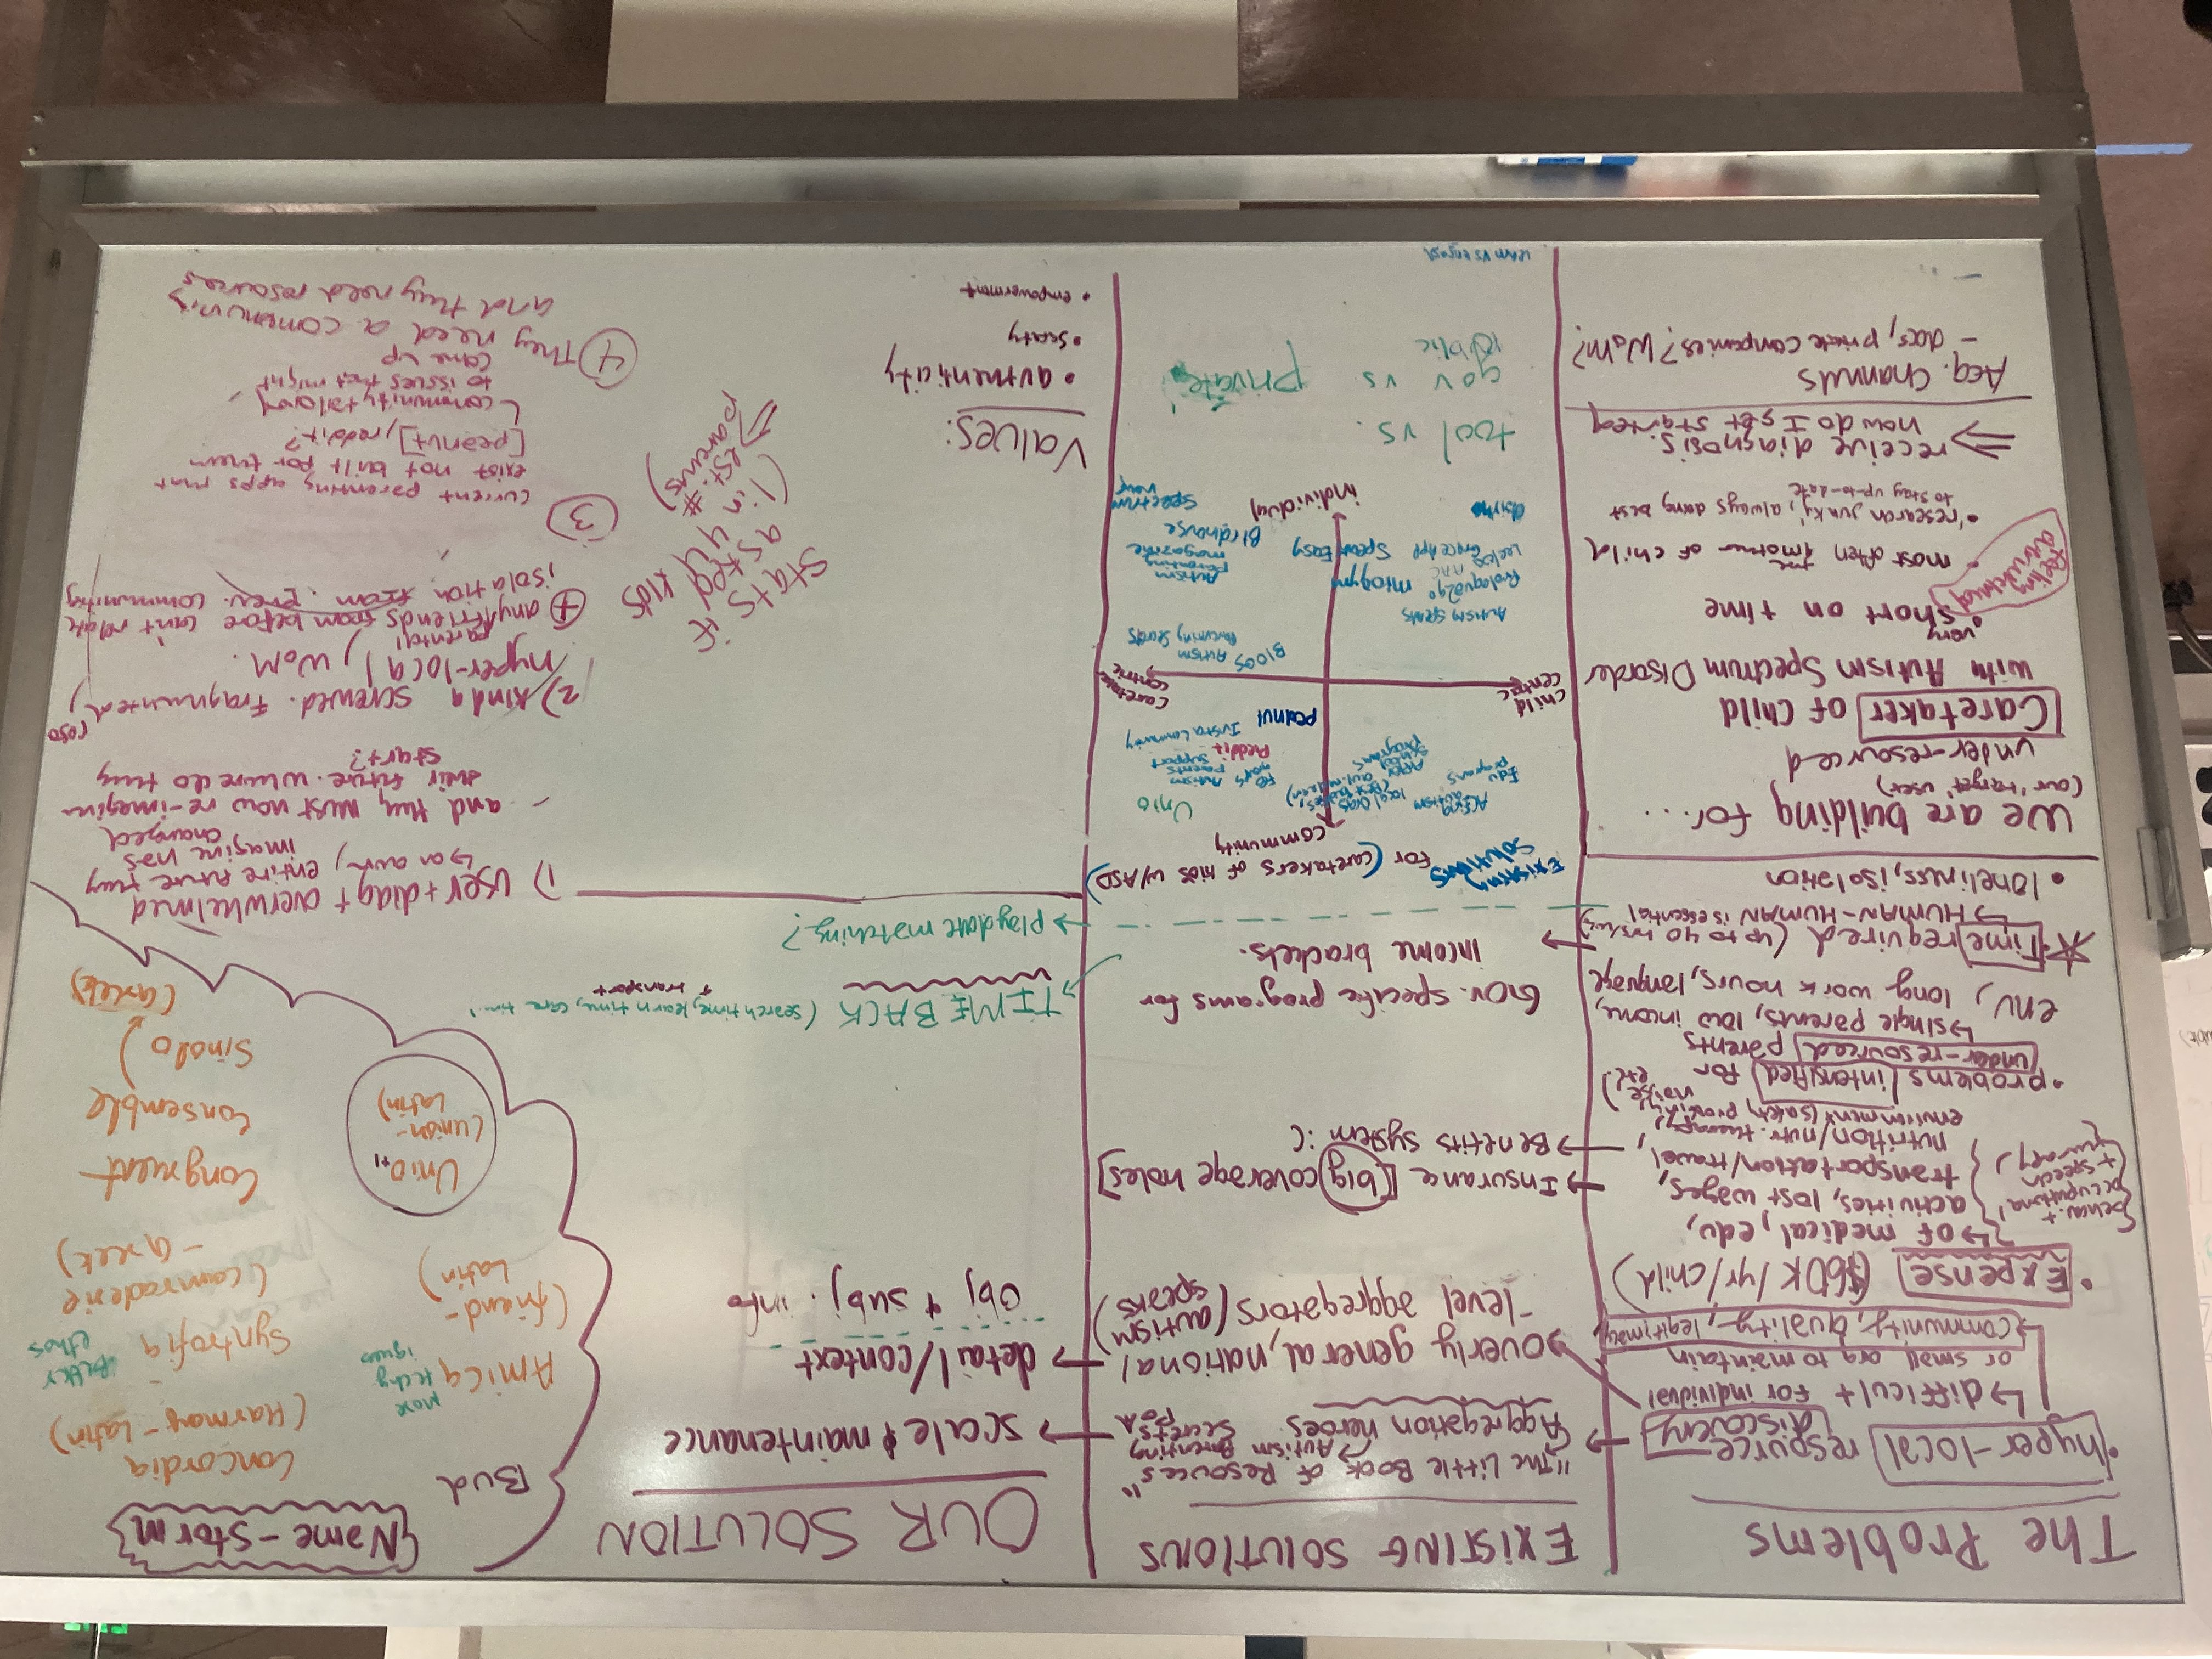 The Problems
• hyper-local resource
discovery
↳ difficult for individual
or small org to maintain
community, quality, legitimacy
• Expense ($60K/yr/child)
↳ of medical, edu,
activities, lost wages,
transportation/travel,
nutrition/nutr. therapy,
environment (safety proofing,
noise,
etc.)
behav. +
occupational
+ speech
• problems intensified for
under-resourced parents
↳ single parents, low income,
env, long work hours, language
• Time required (up to 40 hrs/wk)
↳ HUMAN-HUMAN is essential
• loneliness, isolation
We are building for...
(our 'target' user)
under-resourced
Caretaker of child
with Autism Spectrum Disorder
• very
short on time
feeling
overwhelmed
- most often the mother of child
• 'research junky', always doing best
to stay up-to-date
⇒ receive diagnosis.
how do I get started
Acq. Channels
- docs, private companies? WoM?
EXISTING SOLUTIONS
"The Little Book of Resouces"
Autism Parenting
Secrets
Aggregation heroes
overly general, national
-level aggregators (autism
speaks)
Insurance [big coverage holes]
Benefits system :(
Gov. specific programs for
income brackets.
Existing
Solutions for (caretakers of kids w/ASD)
community
Acting
autism
Edu
programs
local orgs
After
school
programs
Unio
FB
Autism
parents
support
Reddit
Insta Community
peanut
child
centric
caretaker
centric
Blogs
Autism
Parenting Secrets
Autism Speaks
Proloquo2go
AAC
Leeloo
Grace App
miogym
Speak Easy
Autism
parenting
magazine
Birdhouse
Spectrum
individual
tool vs.
gov vs private
public
learn vs engage
OUR SOLUTION
→ scale & maintenance
→ detail/context
obj & subj. info
TIME BACK (search time, learn time, care time)
↑ transport
→ playdate matching?
Values:
• authenticity
• safety
• empowerment
Name-storm
Bud
Concordia
(Harmony-Latin)
Amica
more
techy
(friend-
Latin)
Syntrofia
Better
ethos
(camraderie
- Greek)
Unio +1
(union-
Latin)
Congruent
Consemble
Sinolo
(Greek)
1) user + diag + overwhelmed
↳ on own, entire future they
imagine has
changed
- and they must now re-imagine
their future. Where do they
start?
2) Kinda screwed. Fragmented, reso
hyper-local, WoM.
parental
⊕ any friends from before can't relate
isolation from prev. communities
stats if
asked
(1 in 44 kids
⇒ est. #
parents)
3
current parenting apps that
exist not built for them
[peanut], reddit?
↳ community tailored
to issues that might
come up
4 They need a community
and they need resources